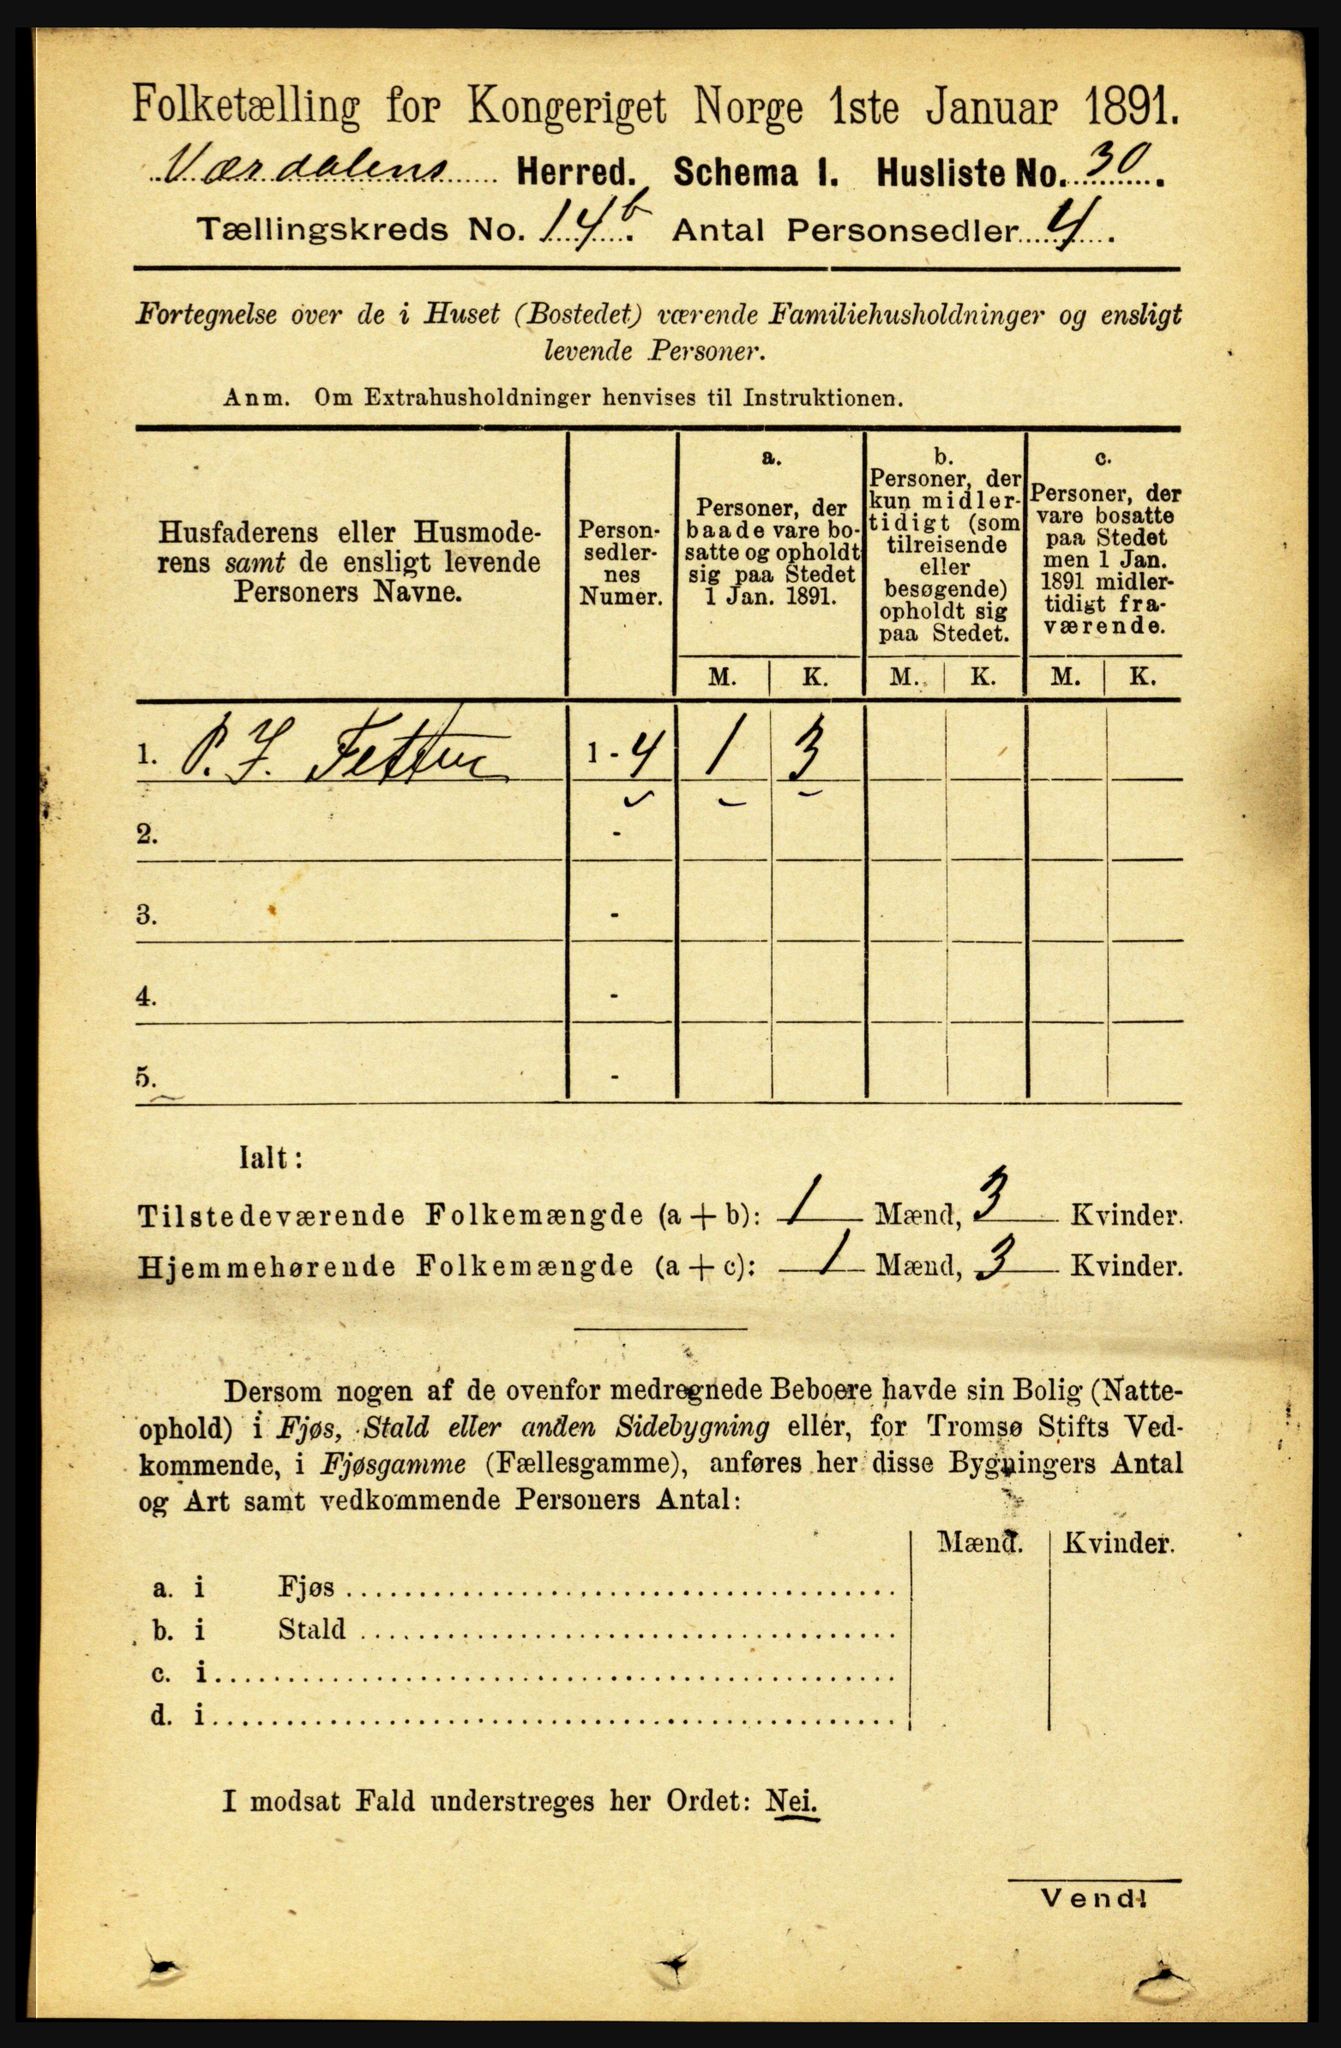 Folketælling for Kongeriget Norge 1ste Januar 1891.
Værdalens Herred. Schema 1. Husliste No. 30.
Tællingskreds No. 14b. Antal Personsedler 4.
Fortegnelse over de i Huset (Bostedet) værende Familiehusholdninger og ensligt
levende Personer.
Anm. Om Extrahusholdninger henvises til Instruktionen.
Husfaderens eller Husmode-
rens samt de ensligt levende
Personers Navne.
Person-
sedler-
nes
Numer.
a.
Personer, der
baade vare bo-
satte og opholdt
sig paa Stedet
1 Jan. 1891.
b.
Personer, der
kun midler-
tidigt (som
tilreisende
eller
besøgende)
opholdt sig
paa Stedet.
c.
Personer, der
vare bosatte
paa Stedet
men 1 Jan.
1891 midler-
tidigt fra-
værende.
M. K. M. K. M. K.
1. P. J. Fetten 1 - 4 1 3
2. -
3. -
4. -
5. -
Ialt:
Tilstedeværende Folkemængde (a + b): 1 Mænd, 3 Kvinder.
Hjemmehørende Folkemængde (a + c): 1 Mænd, 3 Kvinder.
Dersom nogen af de ovenfor medregnede Beboere havde sin Bolig (Natte-
ophold) i Fjøs, Stald eller anden Sidebygning eller, for Tromsø Stifts Ved-
kommende, i Fjøsgamme (Fællesgamme), anføres her disse Bygningers Antal
og Art samt vedkommende Personers Antal:
Mænd. Kvinder.
a. i Fjøs
b. i Stald
c. i
d. i
I modsat Fald understreges her Ordet: Nei.
Vend!